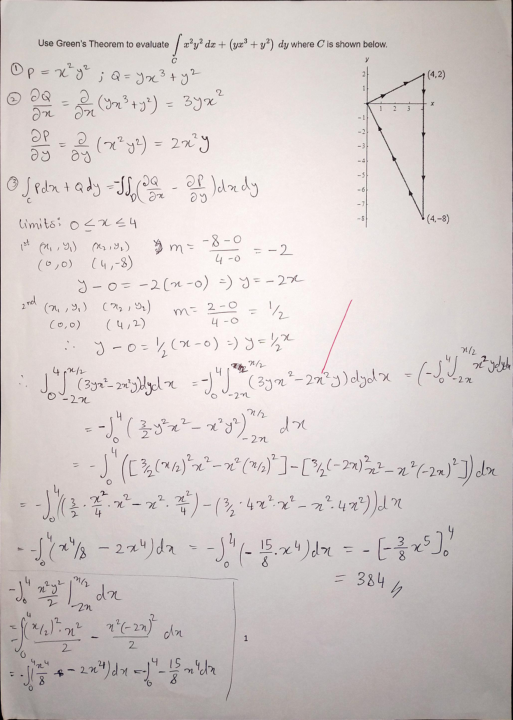 Use Green's Theorem to evaluate ∫_C x²y² dx + (yx³ + y²) dy where C is shown below.
① P = x²y² ; Q = yx³ + y²
② ∂Q/∂x = ∂/∂x (yx³ + y²) = 3yx²
∂P/∂y = ∂/∂y (x²y²) = 2x²y
③ ∫_C Pdx + Qdy = -∬_D (∂Q/∂x - ∂P/∂y) dxdy
y
x
2
1
1 2 3 4
-1
-2
-3
-4
-5
-6
-7
-8
(4,2)
(4,-8)
limits: 0 ≤ x ≤ 4
1st (x₁, y₁) (x₂, y₂) m = (-8-0)/(4-0) = -2
(0,0) (4,-8)
y - 0 = -2(x-0) ⇒ y = -2x
2nd (x₁, y₁) (x₂, y₂) m = (2-0)/(4-0) = 1/2
(0,0) (4,2)
∴ y - 0 = 1/2 (x-0) ⇒ y = 1/2 x
∴ ∫_0^4 ∫_{-2x}^{x/2} (3yx² - 2x²y) dydx = -∫_0^4 ∫_{-2x}^{x/2} (3yx² - 2x²y) dydx = (-∫_0^4 ∫_{-2x}^{x/2} x²y dydx
= -∫_0^4 (3/2 y²x² - x²y²)_{-2x}^{x/2} dx
= -∫_0^4 ([3/2 (x/2)² x² - x² (x/2)²] - [3/2 (-2x)² x² - x² (-2x)²]) dx
= -∫_0^4 ((3/2 · x²/4 · x² - x² · x²/4) - (3/2 · 4x² · x² - x² · 4x²)) dx
= -∫_0^4 (x⁴/8 - 2x⁴) dx = -∫_0^4 (-15/8 · x⁴) dx = -[-3/8 x⁵]_0^4
= 384
-∫_0^4 x²y²/2 |_{-2x}^{x/2} dx
= -∫_0^4 (x/2)² · x²/2 - x²(-2x)²/2 dx
= -∫_0^4 (x⁴/8 - 2x⁴) dx = -∫_0^4 -15/8 x⁴ dx
1